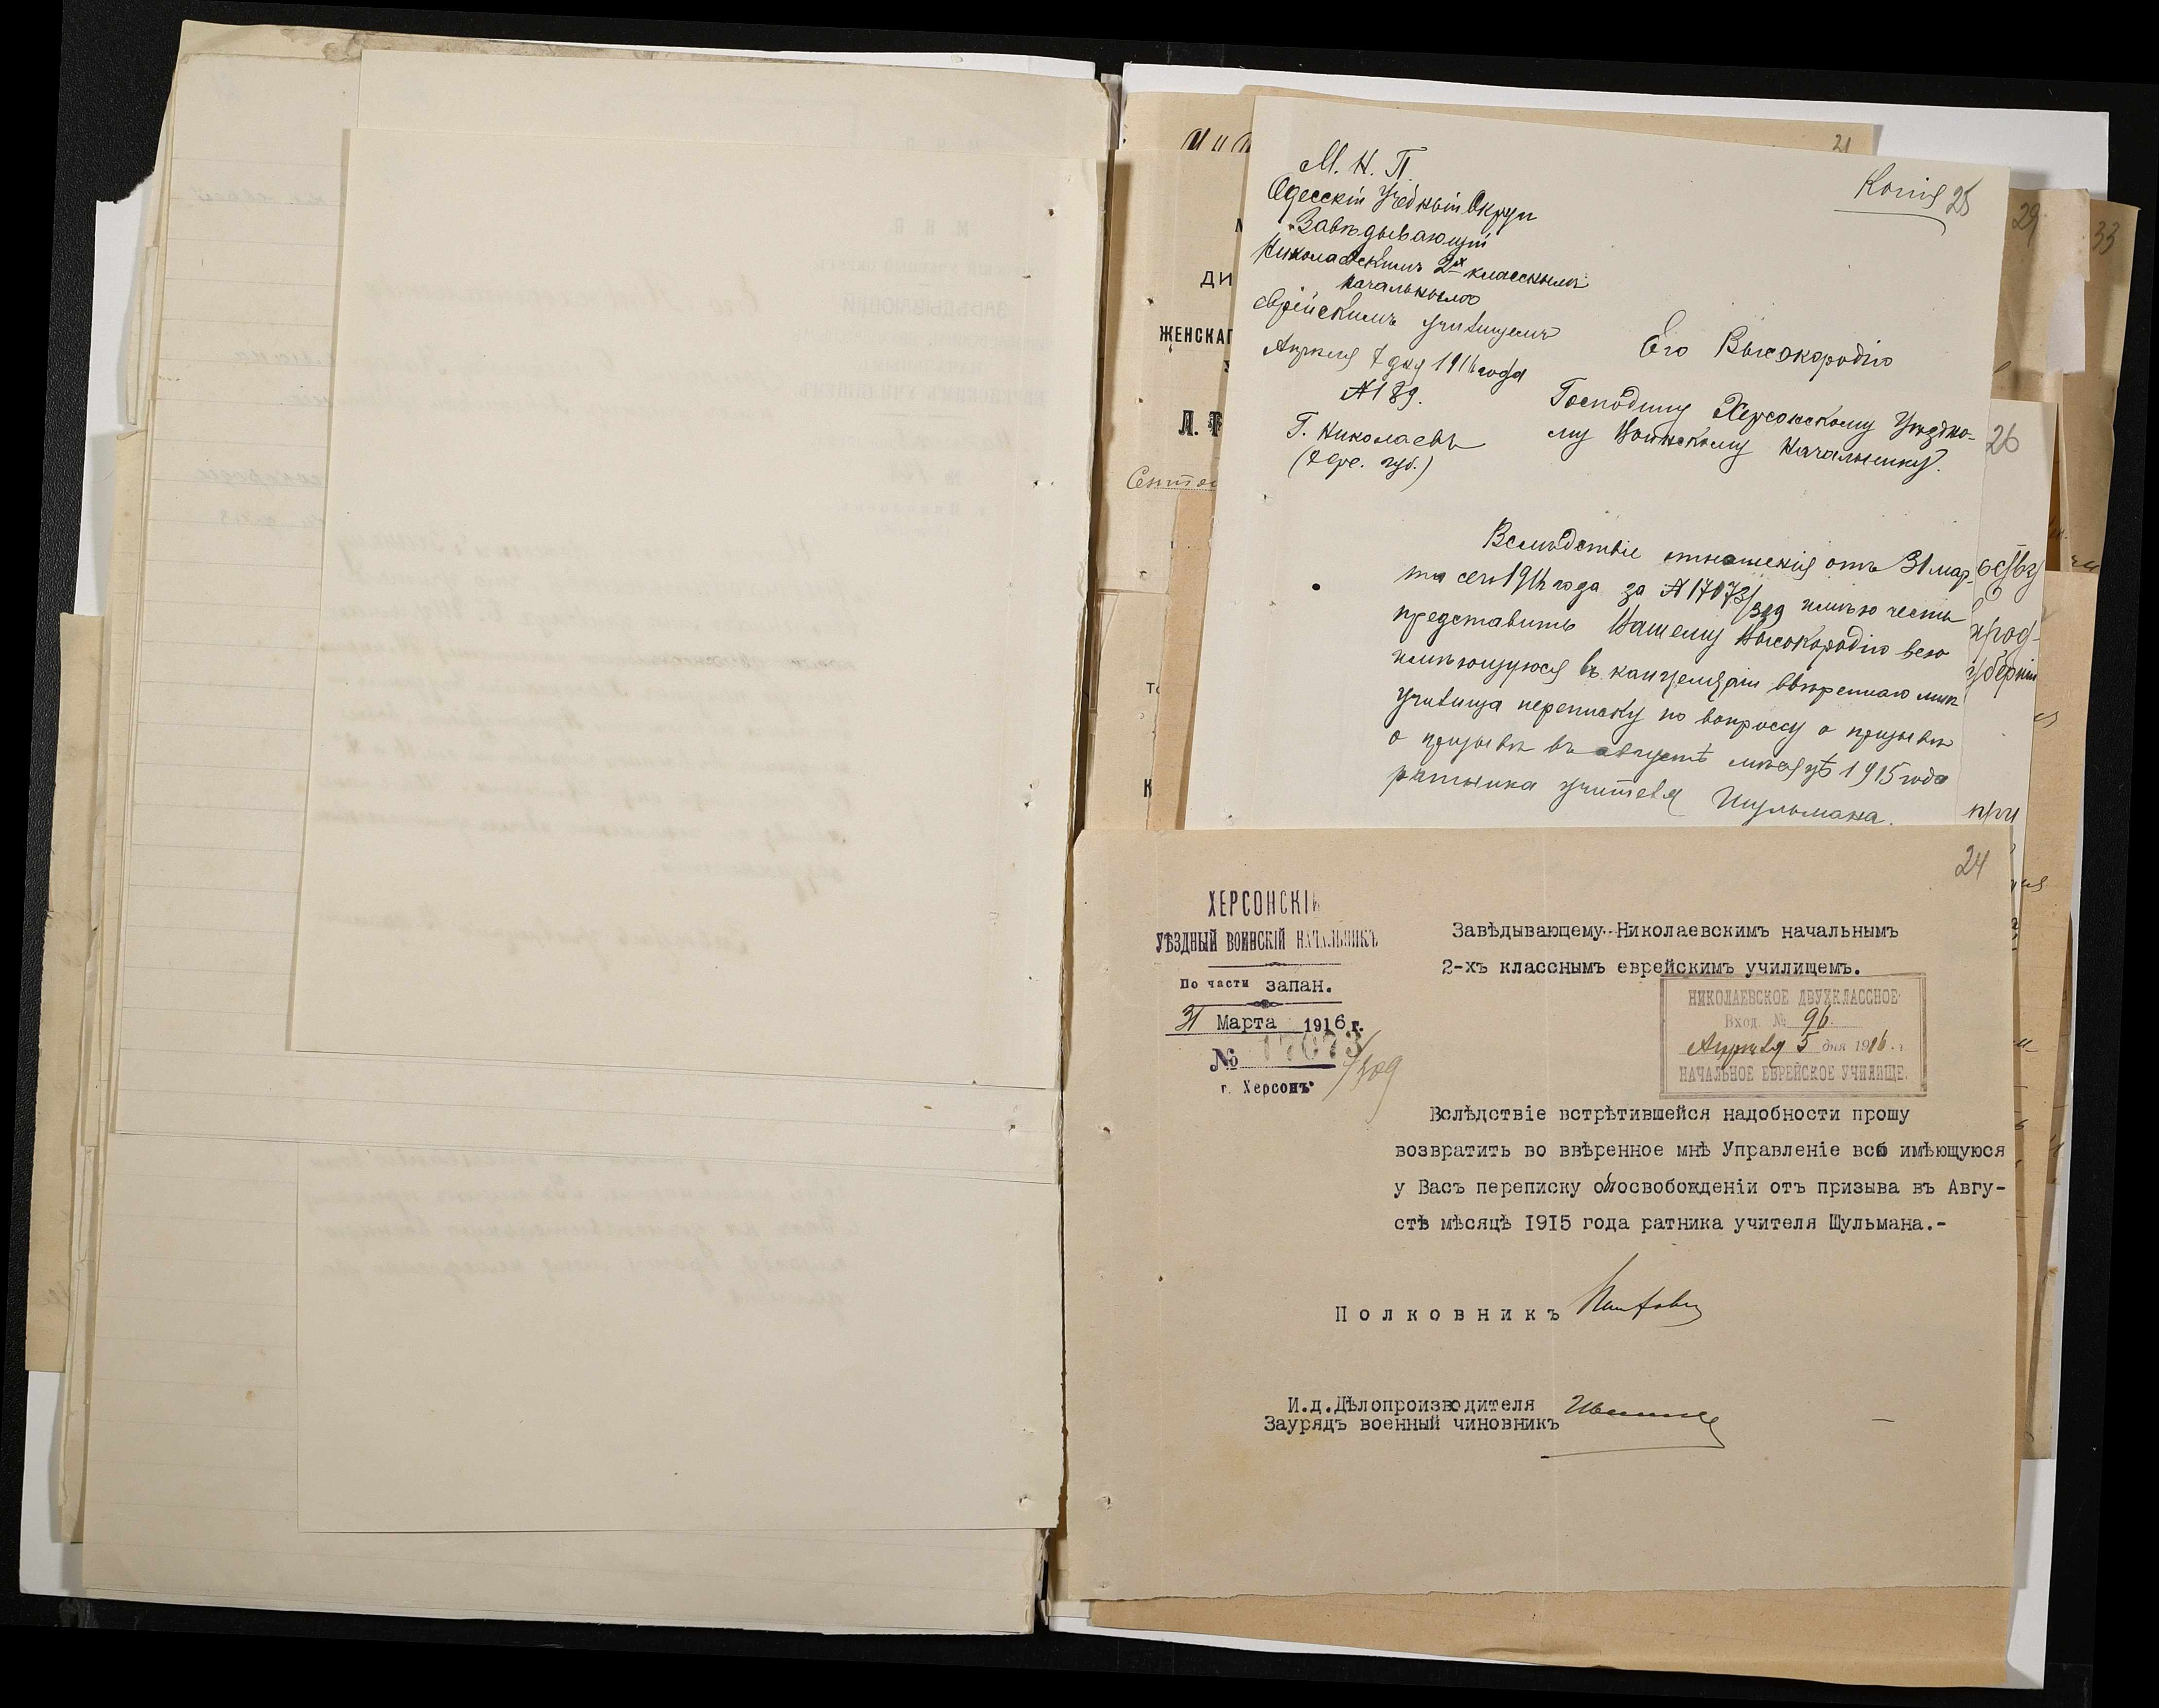 31
Копія 25
29
33
М. Н. П.
Одесскій Учебный Округ
Завѣдывающій
Николаевскимъ 2х классным
начальнымъ
еврейскимъ училищемъ
Апрѣля 7 дня 1916 года
№ 189.
Г. Николаевъ
(Херс. губ.)
Его Высокородію
Господину Херсонскому Уѣздно-
му Воинскому Начальнику.
ДИ
ЖЕНСКАГ
Л. Т
26
Вслѣдствіе отношенія отъ 31 мар-
та сего 1916 года за № 17073/309 имѣю честь
представить Вашему Высокородію всю
имѣющуюся въ канцеляріи ввѣреннаго мнѣ
училища переписку по вопросу о призывѣ
о призывѣ въ августѣ мѣсяцѣ 1915 года
ратника учителя Шульмана.
при
24
ХЕРСОНСКІЙ
УѢЗДНЫЙ ВОИНСКІЙ НАЧАЛЬНИКЪ
По части запан.
31 Марта 1916 г.
№ 17073/309
г. Херсонъ
Завѣдывающему Николаевскимъ начальнымъ
2-хъ класснымъ еврейскимъ училищемъ.
НИКОЛАЕВСКОЕ ДВУХКЛАССНОЕ
Вход. № 96.
Апрѣля 5 дня 1916 г.
НАЧАЛЬНОЕ ЕВРЕЙСКОЕ УЧИЛИЩЕ.
Вслѣдствіе встрѣтившейся надобности прошу
возвратить во ввѣренное мнѣ Управленіе всю имѣющуюся
у Васъ переписку объ освобожденіи отъ призыва въ Авгу-
стѣ мѣсяцѣ 1915 года ратника учителя Шульмана.-
Полковникъ
И.д.Дѣлопроизводителя
Заурядъ военный чиновникъ